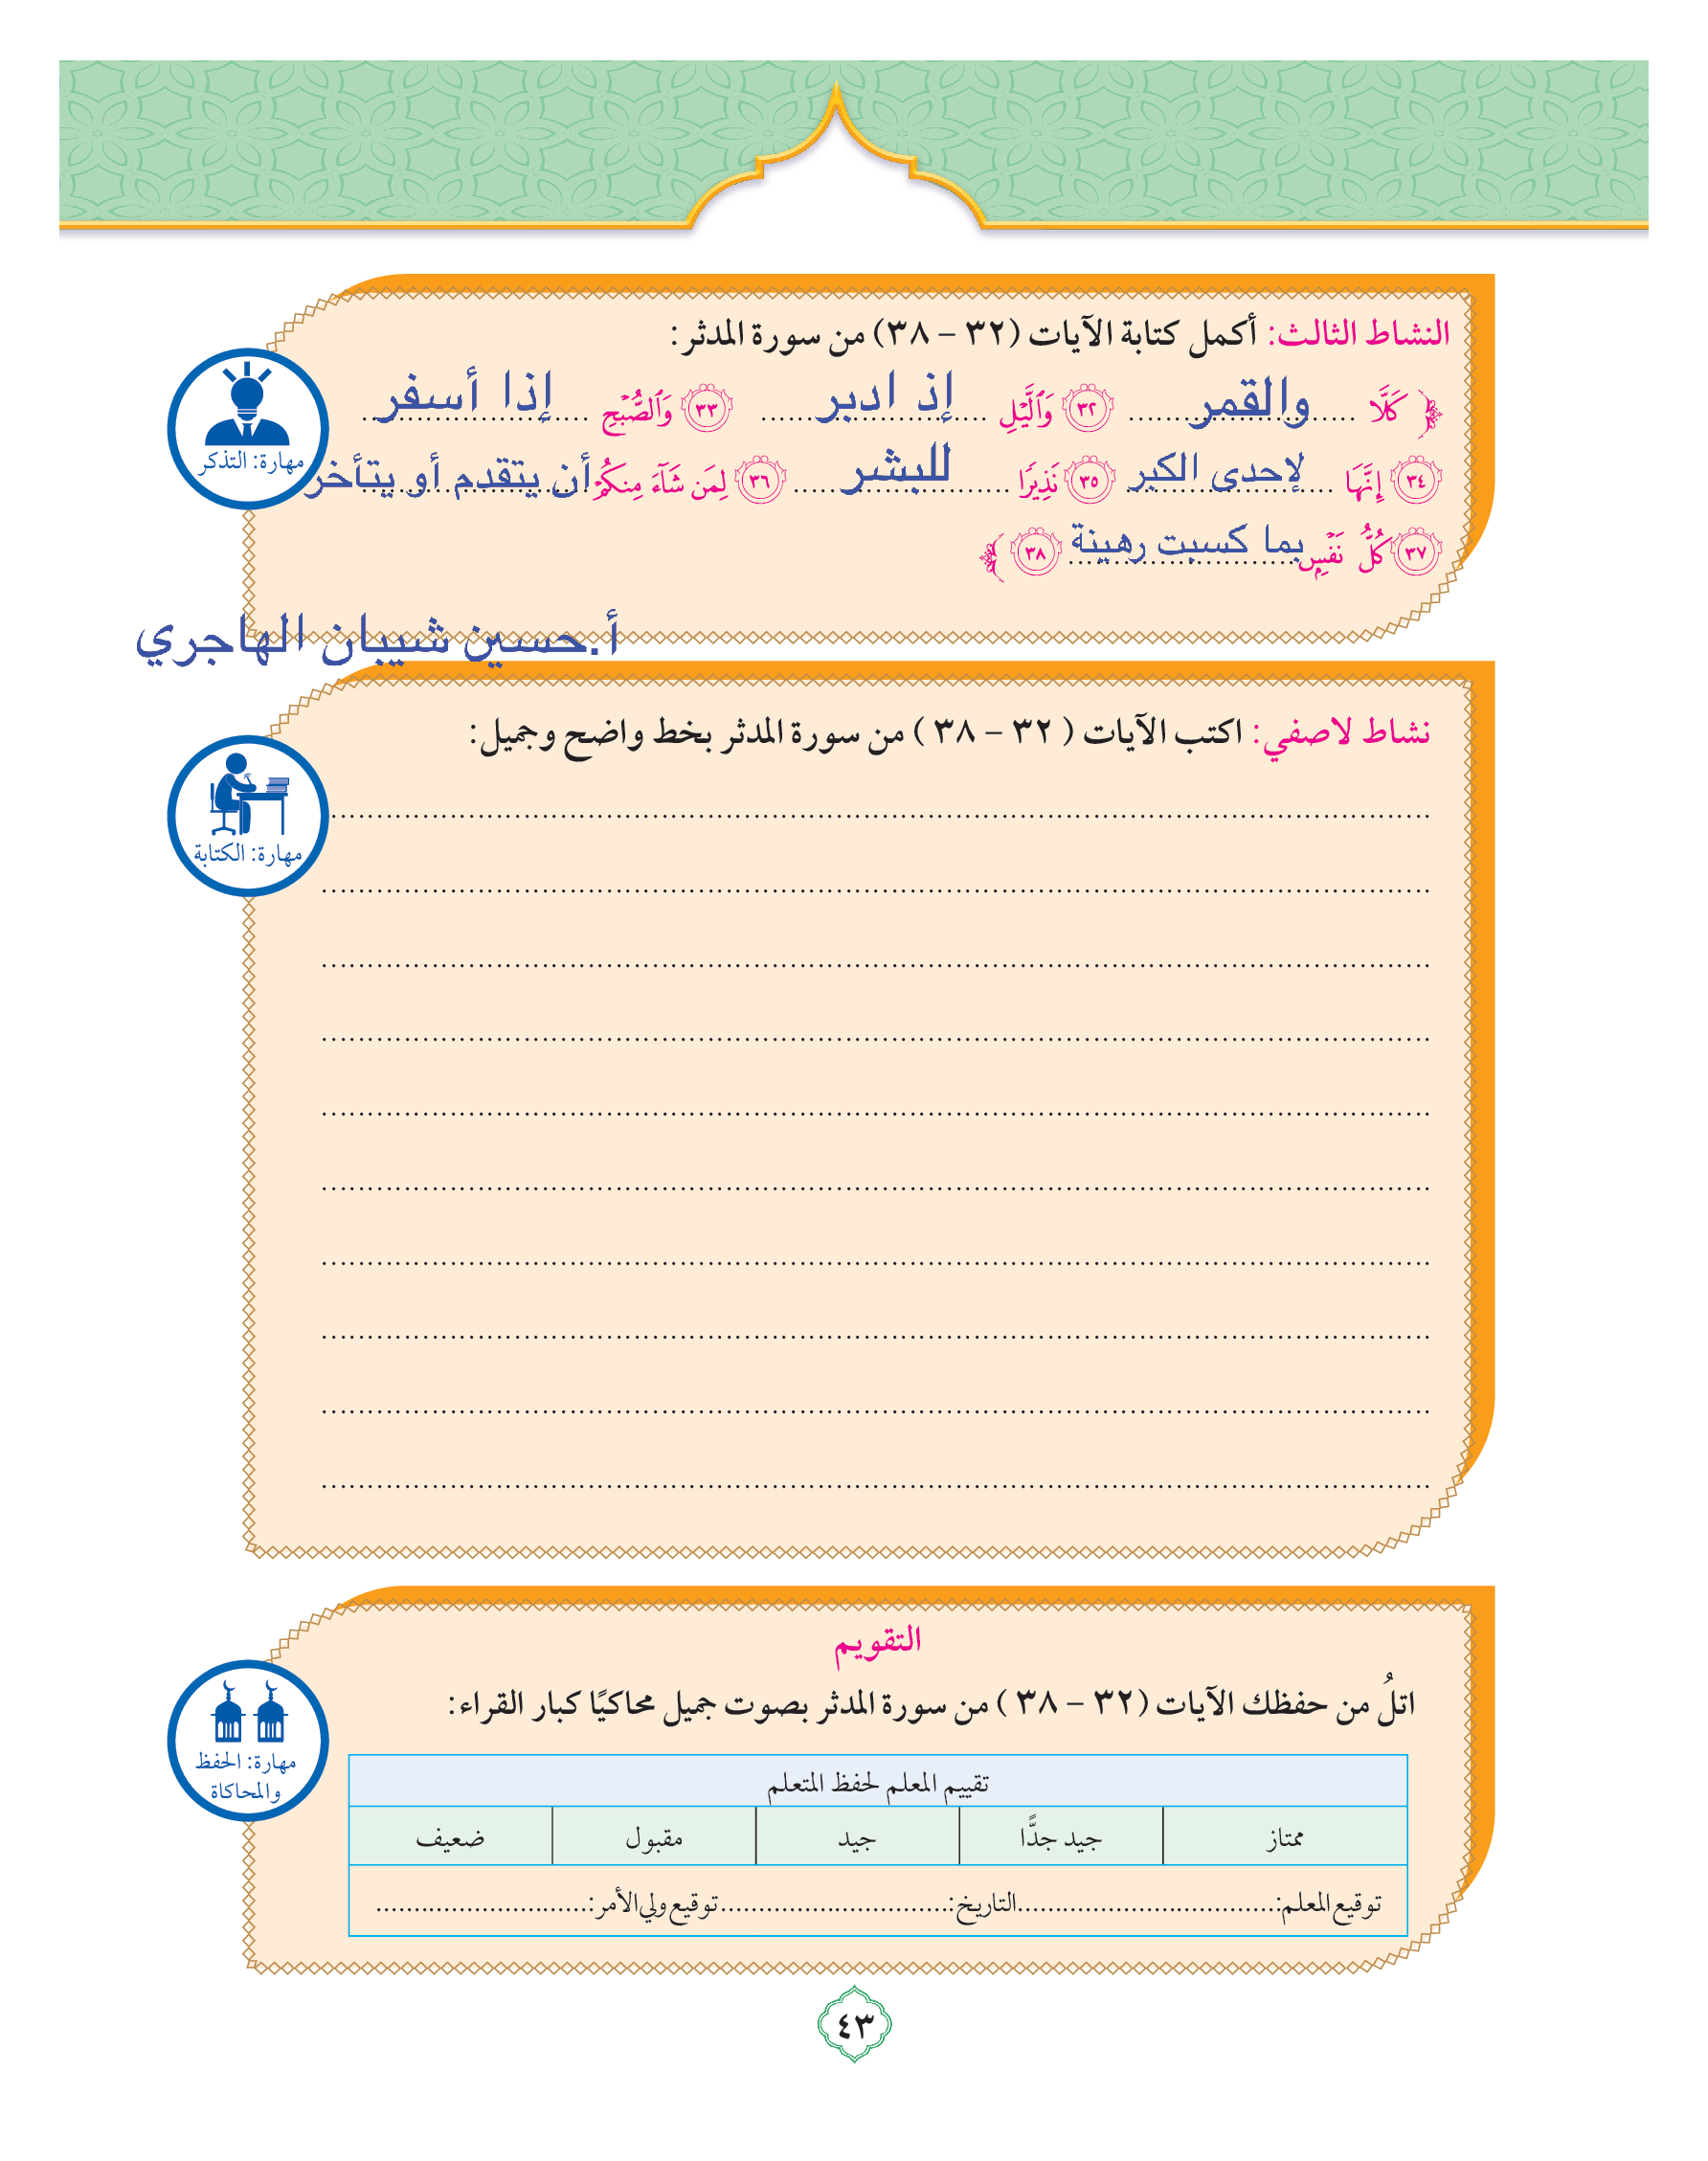 النشاط الثالث: أكمل كتابة الآيات (٣٢ - ٣٨) من سورة المدثر:
﴿ كَلَّا والقمر ٣٢ وَٱلَّيۡلِ إذ ادبر ٣٣ وَٱلصُّبۡحِ إذا أسفر
٣٤ إِنَّهَا لإحدى الكبر ٣٥ نَذِيرٗا للبشر ٣٦ لِمَن شَآءَ مِنكُمۡ أن يتقدم أو يتأخر
٣٧ كُلُّ نَفۡسِۭ بما كسبت رهينة ٣٨ ﴾
مهارة: التذكر
أ.حسين شيبان الهاجري
نشاط لاصفي: اكتب الآيات ( ٣٢ - ٣٨ ) من سورة المدثر بخط واضح وجميل:
مهارة: الكتابة
التقويم
اتلُ من حفظك الآيات (٣٢ - ٣٨ ) من سورة المدثر بصوت جميل محاكيًا كبار القراء:
مهارة: الحفظ
والمحاكاة
تقييم المعلم لحفظ المتعلم
ممتاز جيد جدًّا جيد مقبول ضعيف
توقيع المعلم:..................................التاريخ:..............................توقيع ولي الأمر:............................
٤٣